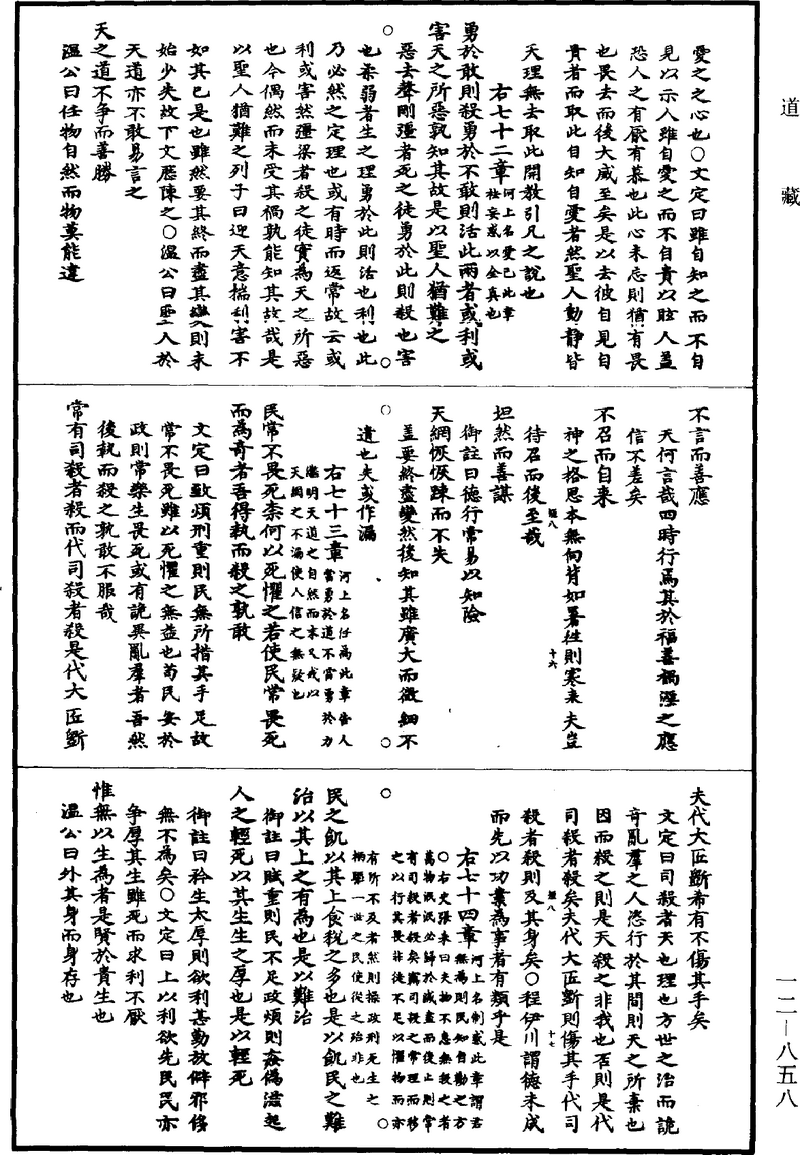 道藏
愛之之心也○文定曰雖自知之而不自
見以示人雖自愛之而不自貴以眩人蓋
恐人之有厭有慕也此心未忘則猶有畏
也畏去而後大威至矣是以去彼自見自
貴者而取此自知自愛者然聖人動靜皆
天理無去取此開教引凡之說也
右七十二章河上名愛己此章
袪妄惑以全真也
勇於敢則殺勇於不敢則活此兩者或利或
害天之所惡孰知其故是以聖人猶難之
惡去聲剛彊者死之徒勇於此則殺也害
也柔弱者生之理勇於此則活也利也此
乃必然之定理也或有時而返常故云或
利或害然彊梁者殺之徒實為天之所惡
也今偶然而未受其禍孰能知其故哉是
以聖人猶難之列子曰迎天意揣利害不
如其已是也雖然要其終而盡其變則未
始少失故下文歷陳之○溫公曰聖人於
天道亦不敢易言之
天之道不爭而善勝
溫公曰任物自然而物莫能違
不言而善應
天何言哉四時行焉其於福善禍淫之應
信不差矣
不召而自來
神之格思本無向背如暑往則寒來夫豈
待召而後至哉
坦然而善謀
御註曰德行常易以知險
天網恢恢踈而不失
蓋要終盡變然後知其雖廣大而微細不
遺也失或作漏
右七十三章河上名任為此章告人
當勇於道不當勇於力
繼明天道之自然而末又戒以
天網之不漏使人信之無疑也
民常不畏死柰何以死懼之若使民常畏死
而為奇者吾得執而殺之孰敢
文定曰政煩刑重則民無所措其手足故
常不畏死雖以死懼之無益也苟民安於
政則常樂生畏死或有詭異亂羣者吾然
後執而殺之孰敢不服哉
常有司殺者殺而代司殺者殺是代大匠斲
夫代大匠斲希有不傷其手矣
文定曰司殺者天也理也方世之治而詭
奇亂羣之人恣行於其間則天之所棄也
因而殺之則是天殺之非我也否則是代
司殺者殺矣夫代大匠斲則傷其手代司
殺者殺則及其身矣○程伊川謂德未成
而先以功業為事者有類乎是
右七十四章河上名制惑此章謂君
無為則民知自勸之方
○右史張耒曰夫物不息無殺之者
萬物泯泯必歸於滅盡而後止則常
有司殺者殺矣竊司殺之常理而移
之以行其畏非徒不足以懼物而亦
有所不及者然則操政刑死生之
柄驅一世之民使從之殆非也
民之飢以其上食稅之多也是以飢民之難
治以其上之有為也是以難治
御註曰賦重則民不足政煩則姦偽滋起
人之輕死以其生生之厚也是以輕死
御註曰矜生太厚則欲利甚勤放僻邪侈
無不為矣○文定曰上以利欲先民民亦
爭厚其生雖死而求利不厭
惟無以生為者是賢於貴生也
溫公曰外其身而身存也
一二—八五八